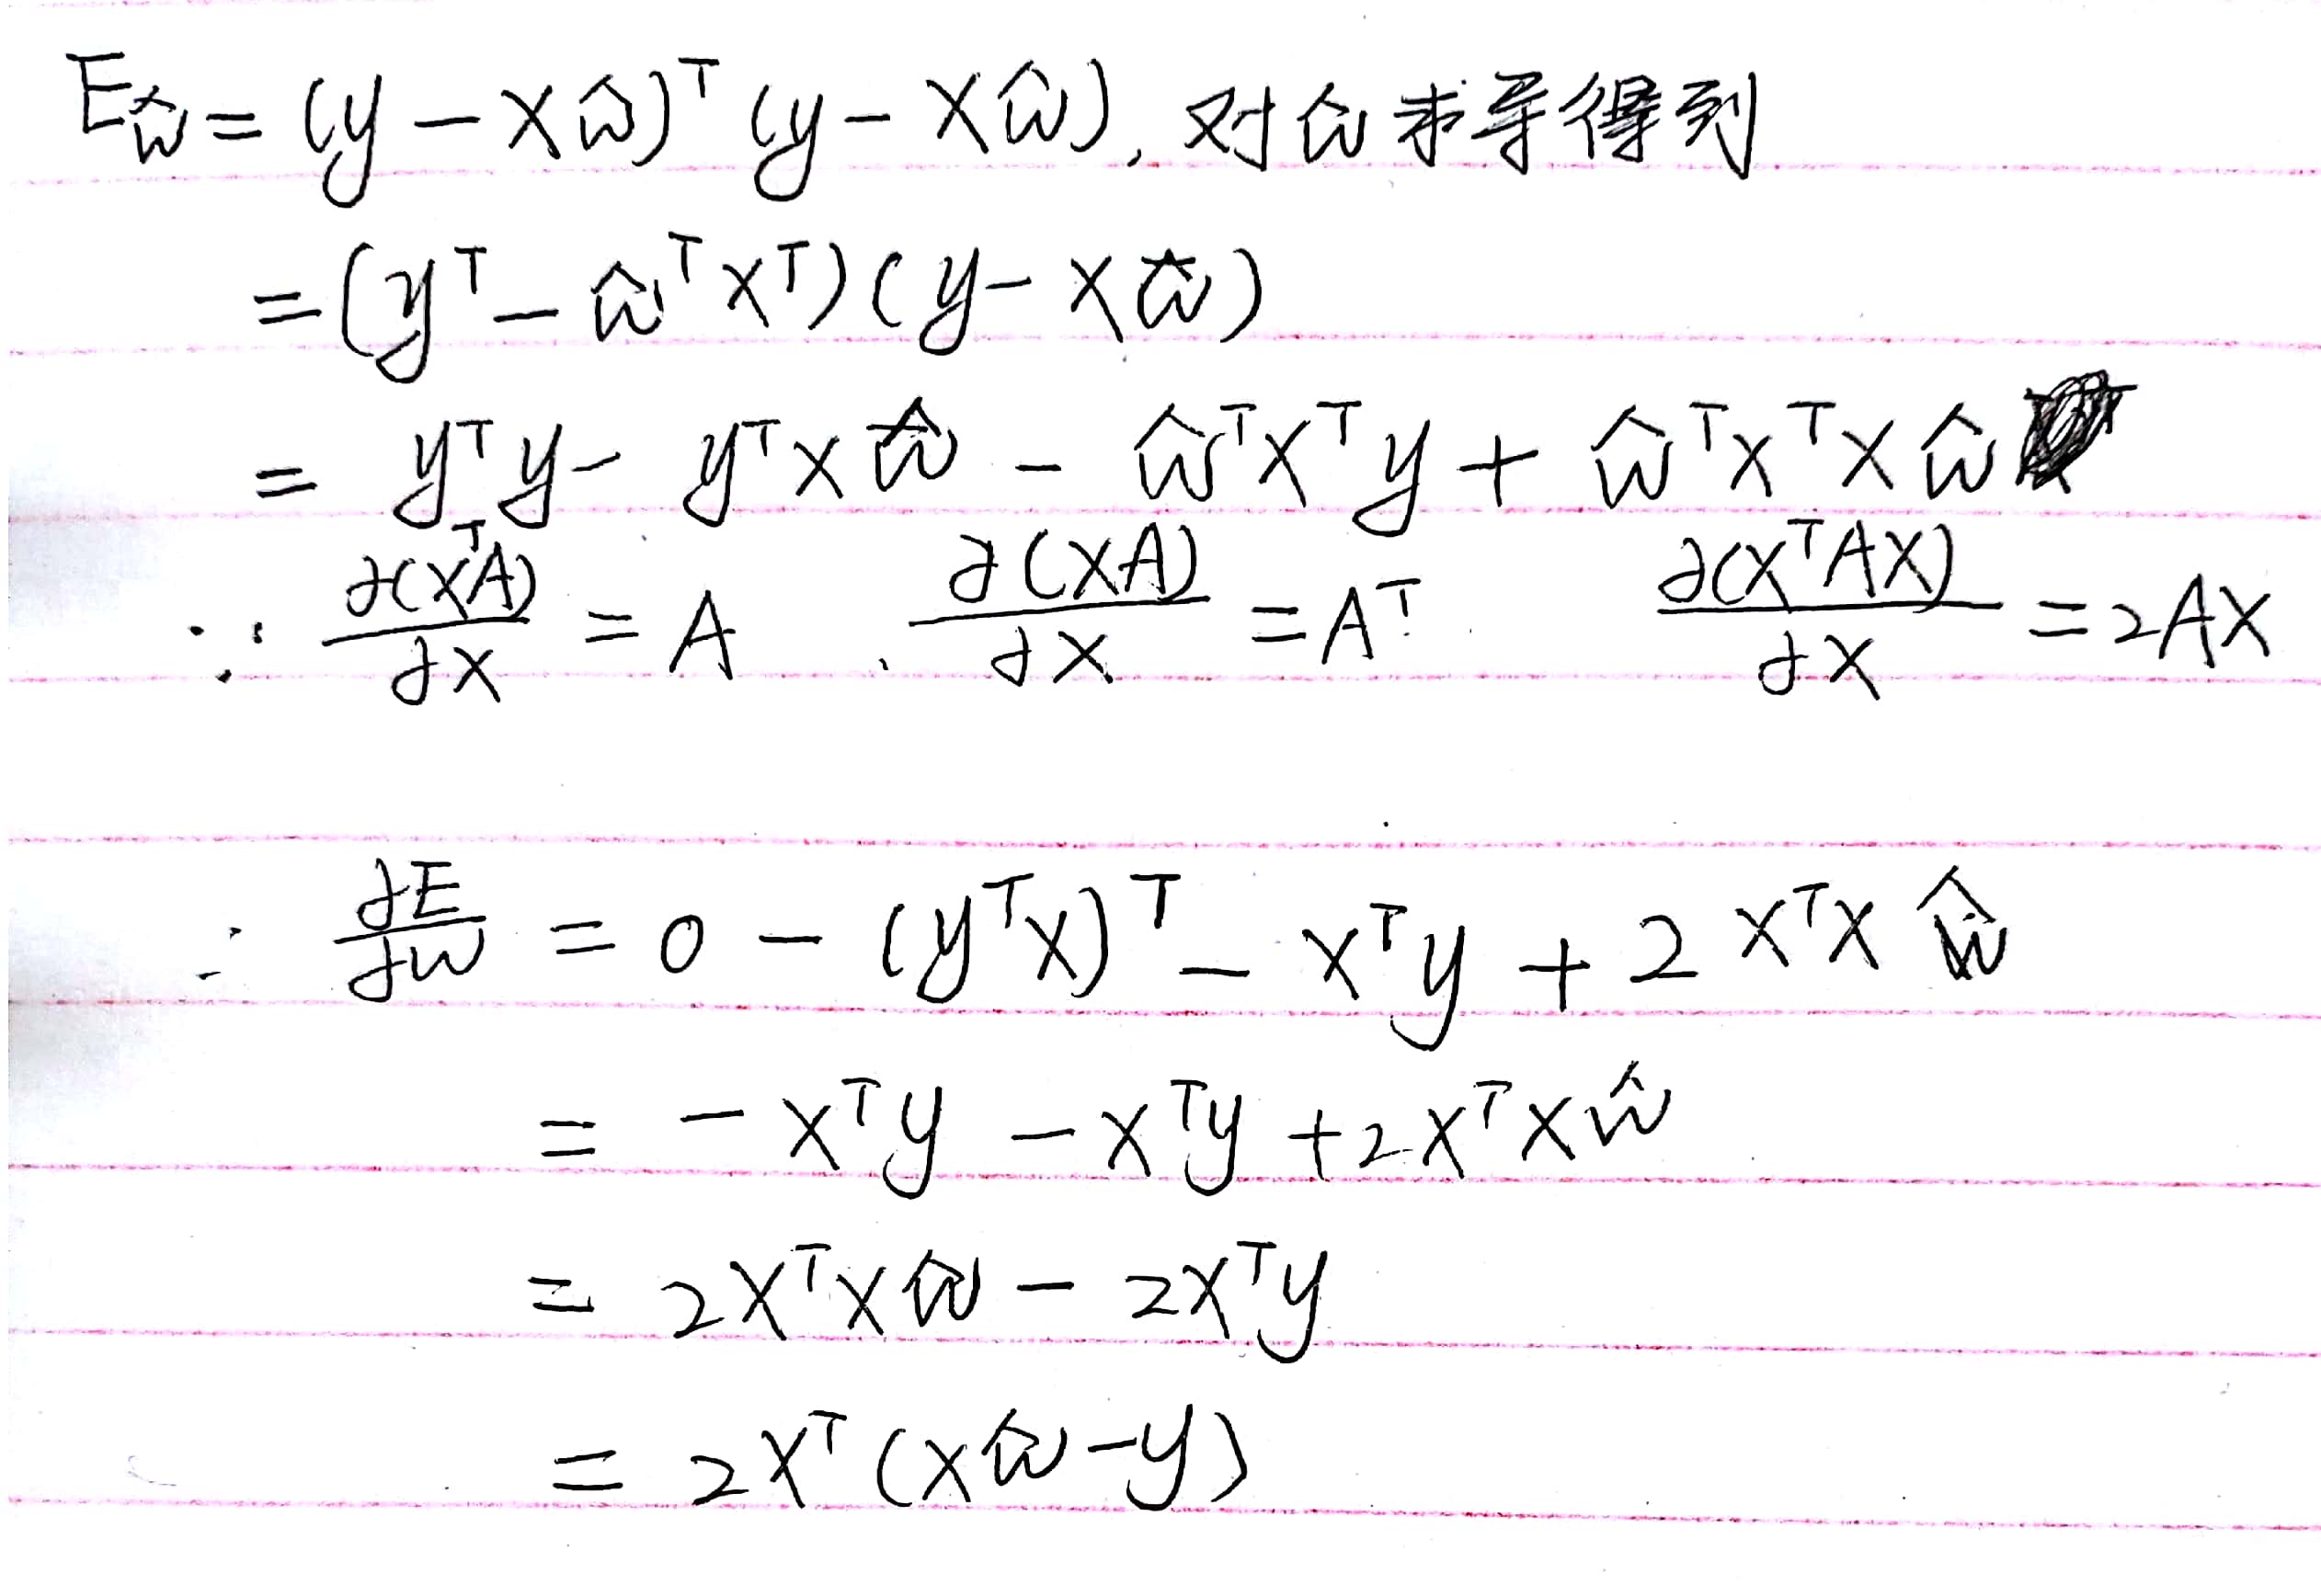 E_ŵ = (y - Xŵ)ᵀ (y - Xŵ), 对ŵ求导得到
= (yᵀ - ŵᵀXᵀ)(y - Xŵ)
= yᵀy - yᵀXŵ - ŵᵀXᵀy + ŵᵀXᵀXŵ
∵ ∂(XᵀA)/∂X = A 、 ∂(XA)/∂X = Aᵀ ∂(XᵀAX)/∂X = 2AX
∴ ∂E/∂w = 0 - (yᵀX)ᵀ - Xᵀy + 2XᵀXŵ
= -Xᵀy - Xᵀy + 2XᵀXŵ
= 2XᵀXŵ - 2Xᵀy
= 2Xᵀ(Xŵ - y)